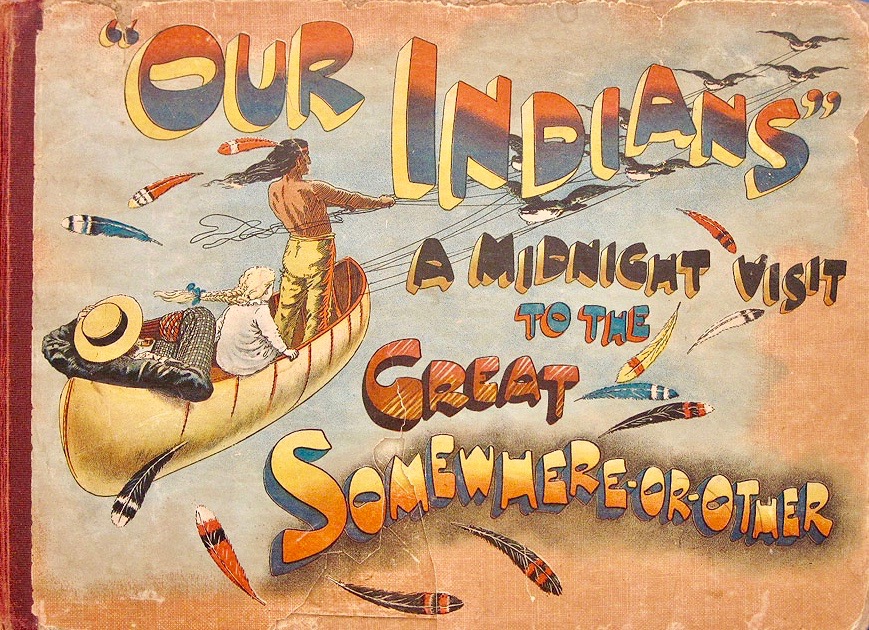 "OUR INDIANS"
A MIDNIGHT VISIT
TO THE
GREAT
SOMEWHERE-OR-OTHER